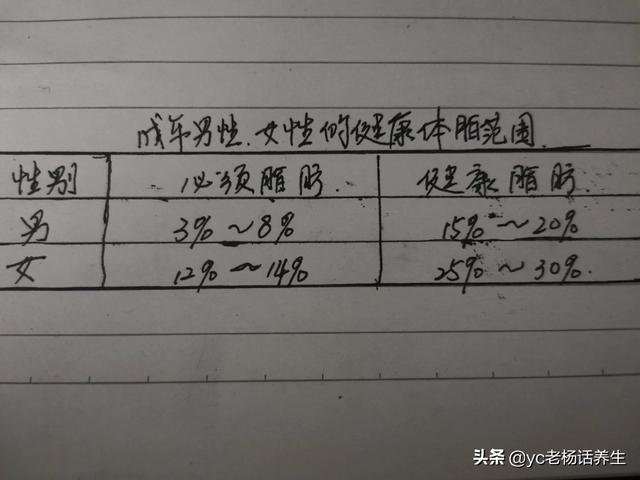 成年男性、女性的健康体脂范围
性别 必须脂肪. 健康脂肪.
男 3%～8% 15%～20%
女 12%～14% 25%～30%.
头条 @yc老杨话养生